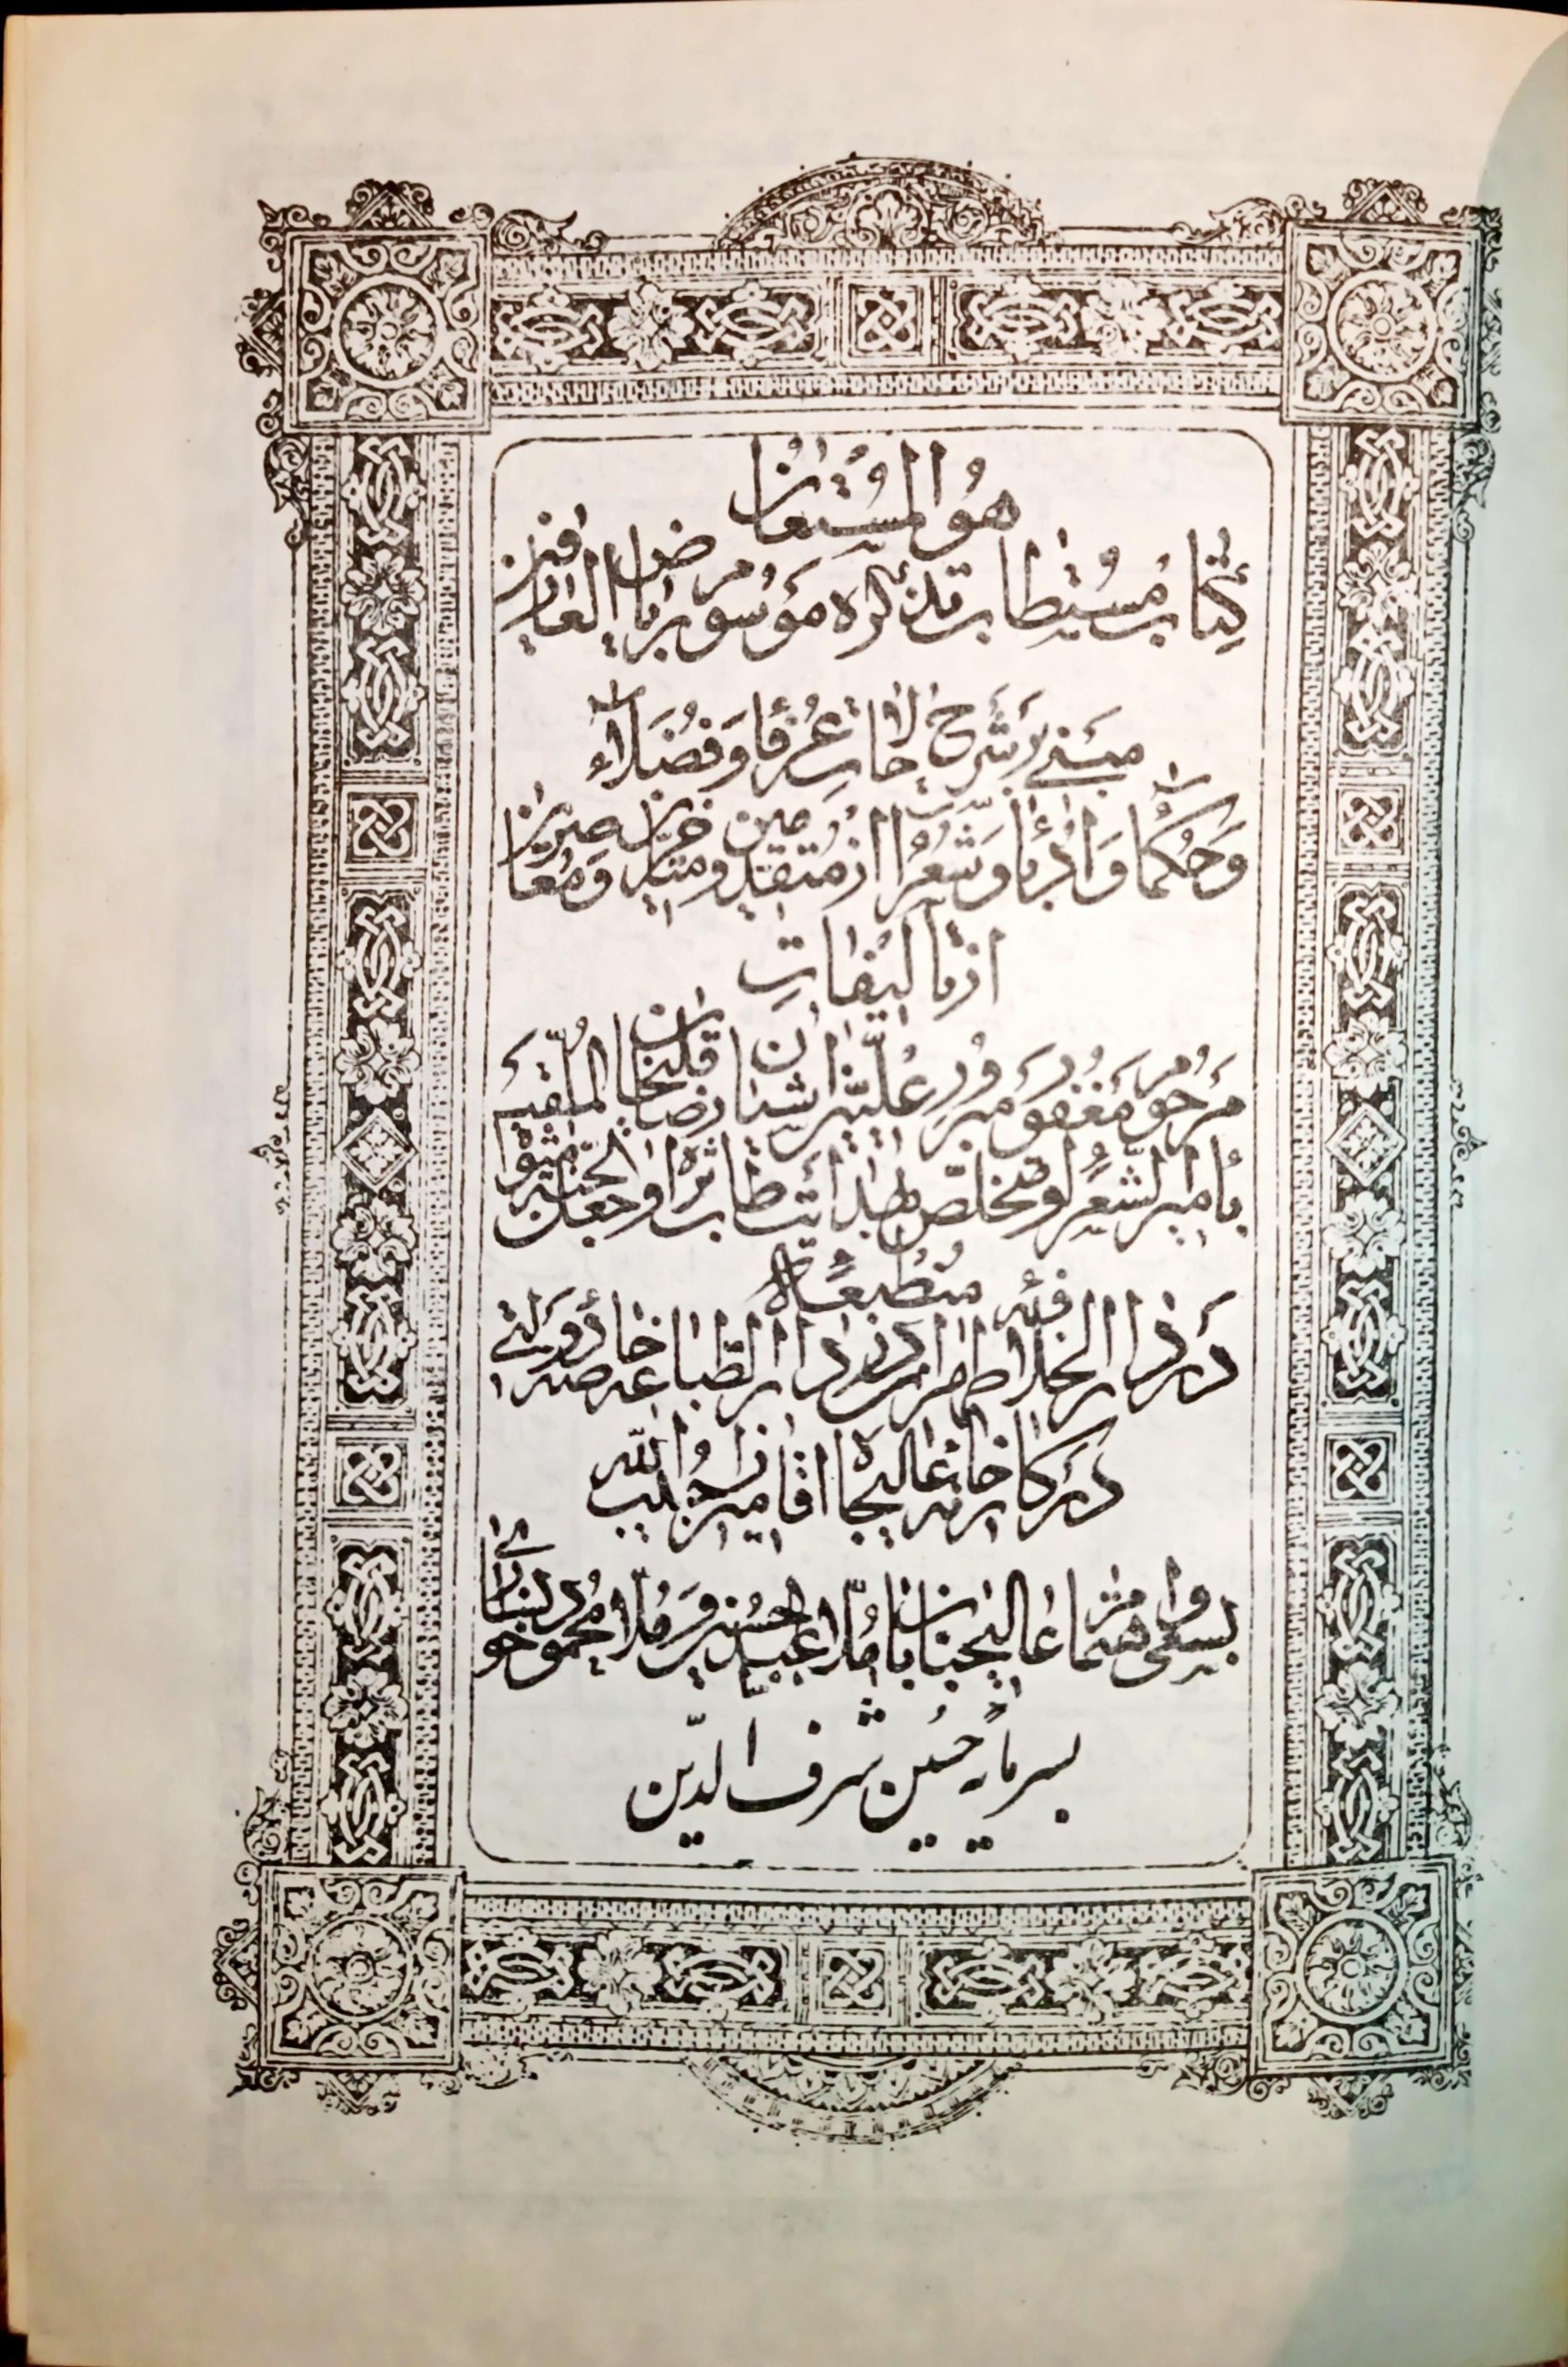 هو المستعان
کتاب مستطاب تذکره موسوم بریاض العارفین
مبنی بر شرح حالات عرفا و فضلاء
و حکما و ادبا و شعرا از متقدمین و متاخرین و معاصرین
از تالیفات
مرحوم مغفور مبرور علیین اشیان رضا قلیخان الملقب
بامیر الشعراء و متخلص بهدایت طاب ثراه و جعل الجنة مثواه
منطبعة
در دار الخلافه طهران در دار الطباعه خاصه دولتی
در کارخانه عالیجاه اقا میرزا حبیب الله
بسعی و اهتمام عالیجنابان ملا عبد الحسین و ملا محمود خونساری
بسرمایه حسین شرف الدین